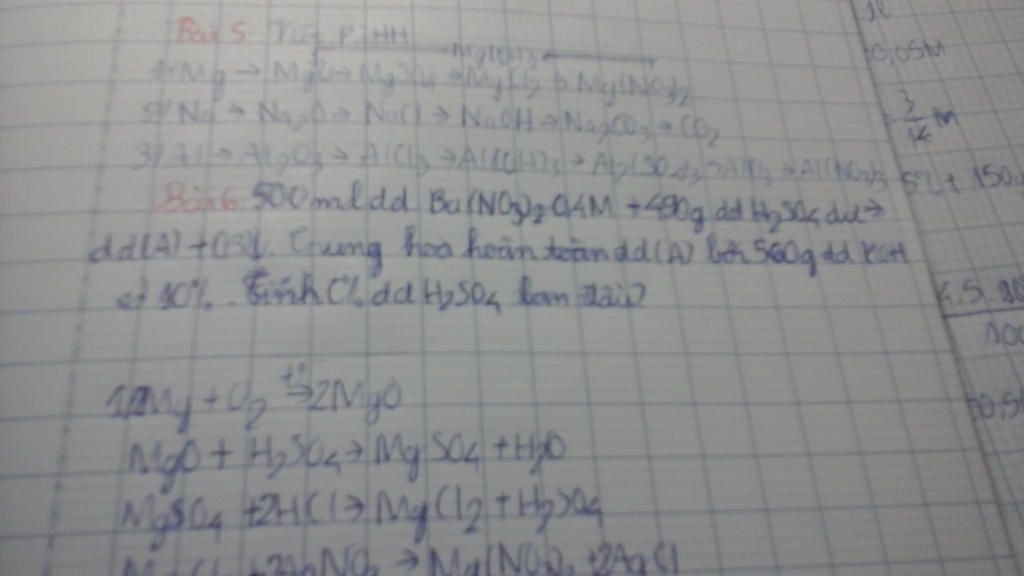 Bài 5
Mg(OH)2
1/ Mg → MgO → MgSO4 → MgCl2 → Mg(NO3)2
2/ Na → Na2O → NaCl → NaOH → Na2CO3 → CO2
3/ Al → Al2O3 → AlCl3 → Al(OH)3 → Al2(SO4)3 → AlCl3 → Al(NO3)3
Bài 6 500ml dd Ba(NO3)2 0,4M + 490g dd H2SO4 dư →
dd(A) + Trung hoà hoàn toàn dd(A) bởi 560g dd KOH
10%. Tính C% dd H2SO4 ban đầu?
1/ 2Mg + O2 t° → 2MgO
MgO + H2SO4 → MgSO4 + H2O
MgSO4 + 2HCl → MgCl2 + H2SO4
+ 2AgNO3 → Mg(NO3)2 + 2AgCl
0,05M
150